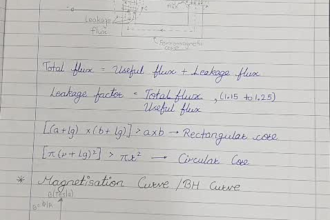 Leakage
flux
Total flux = Useful flux + Leakage flux
Leakage factor = Total flux , (1.15 to 1.25)
Useful flux
[(a+lg) x (b+lg)] > axb → Rectangular core
[π(r+lg)²] > πr² → Circular Core
* Magnetisation Curve / BH Curve